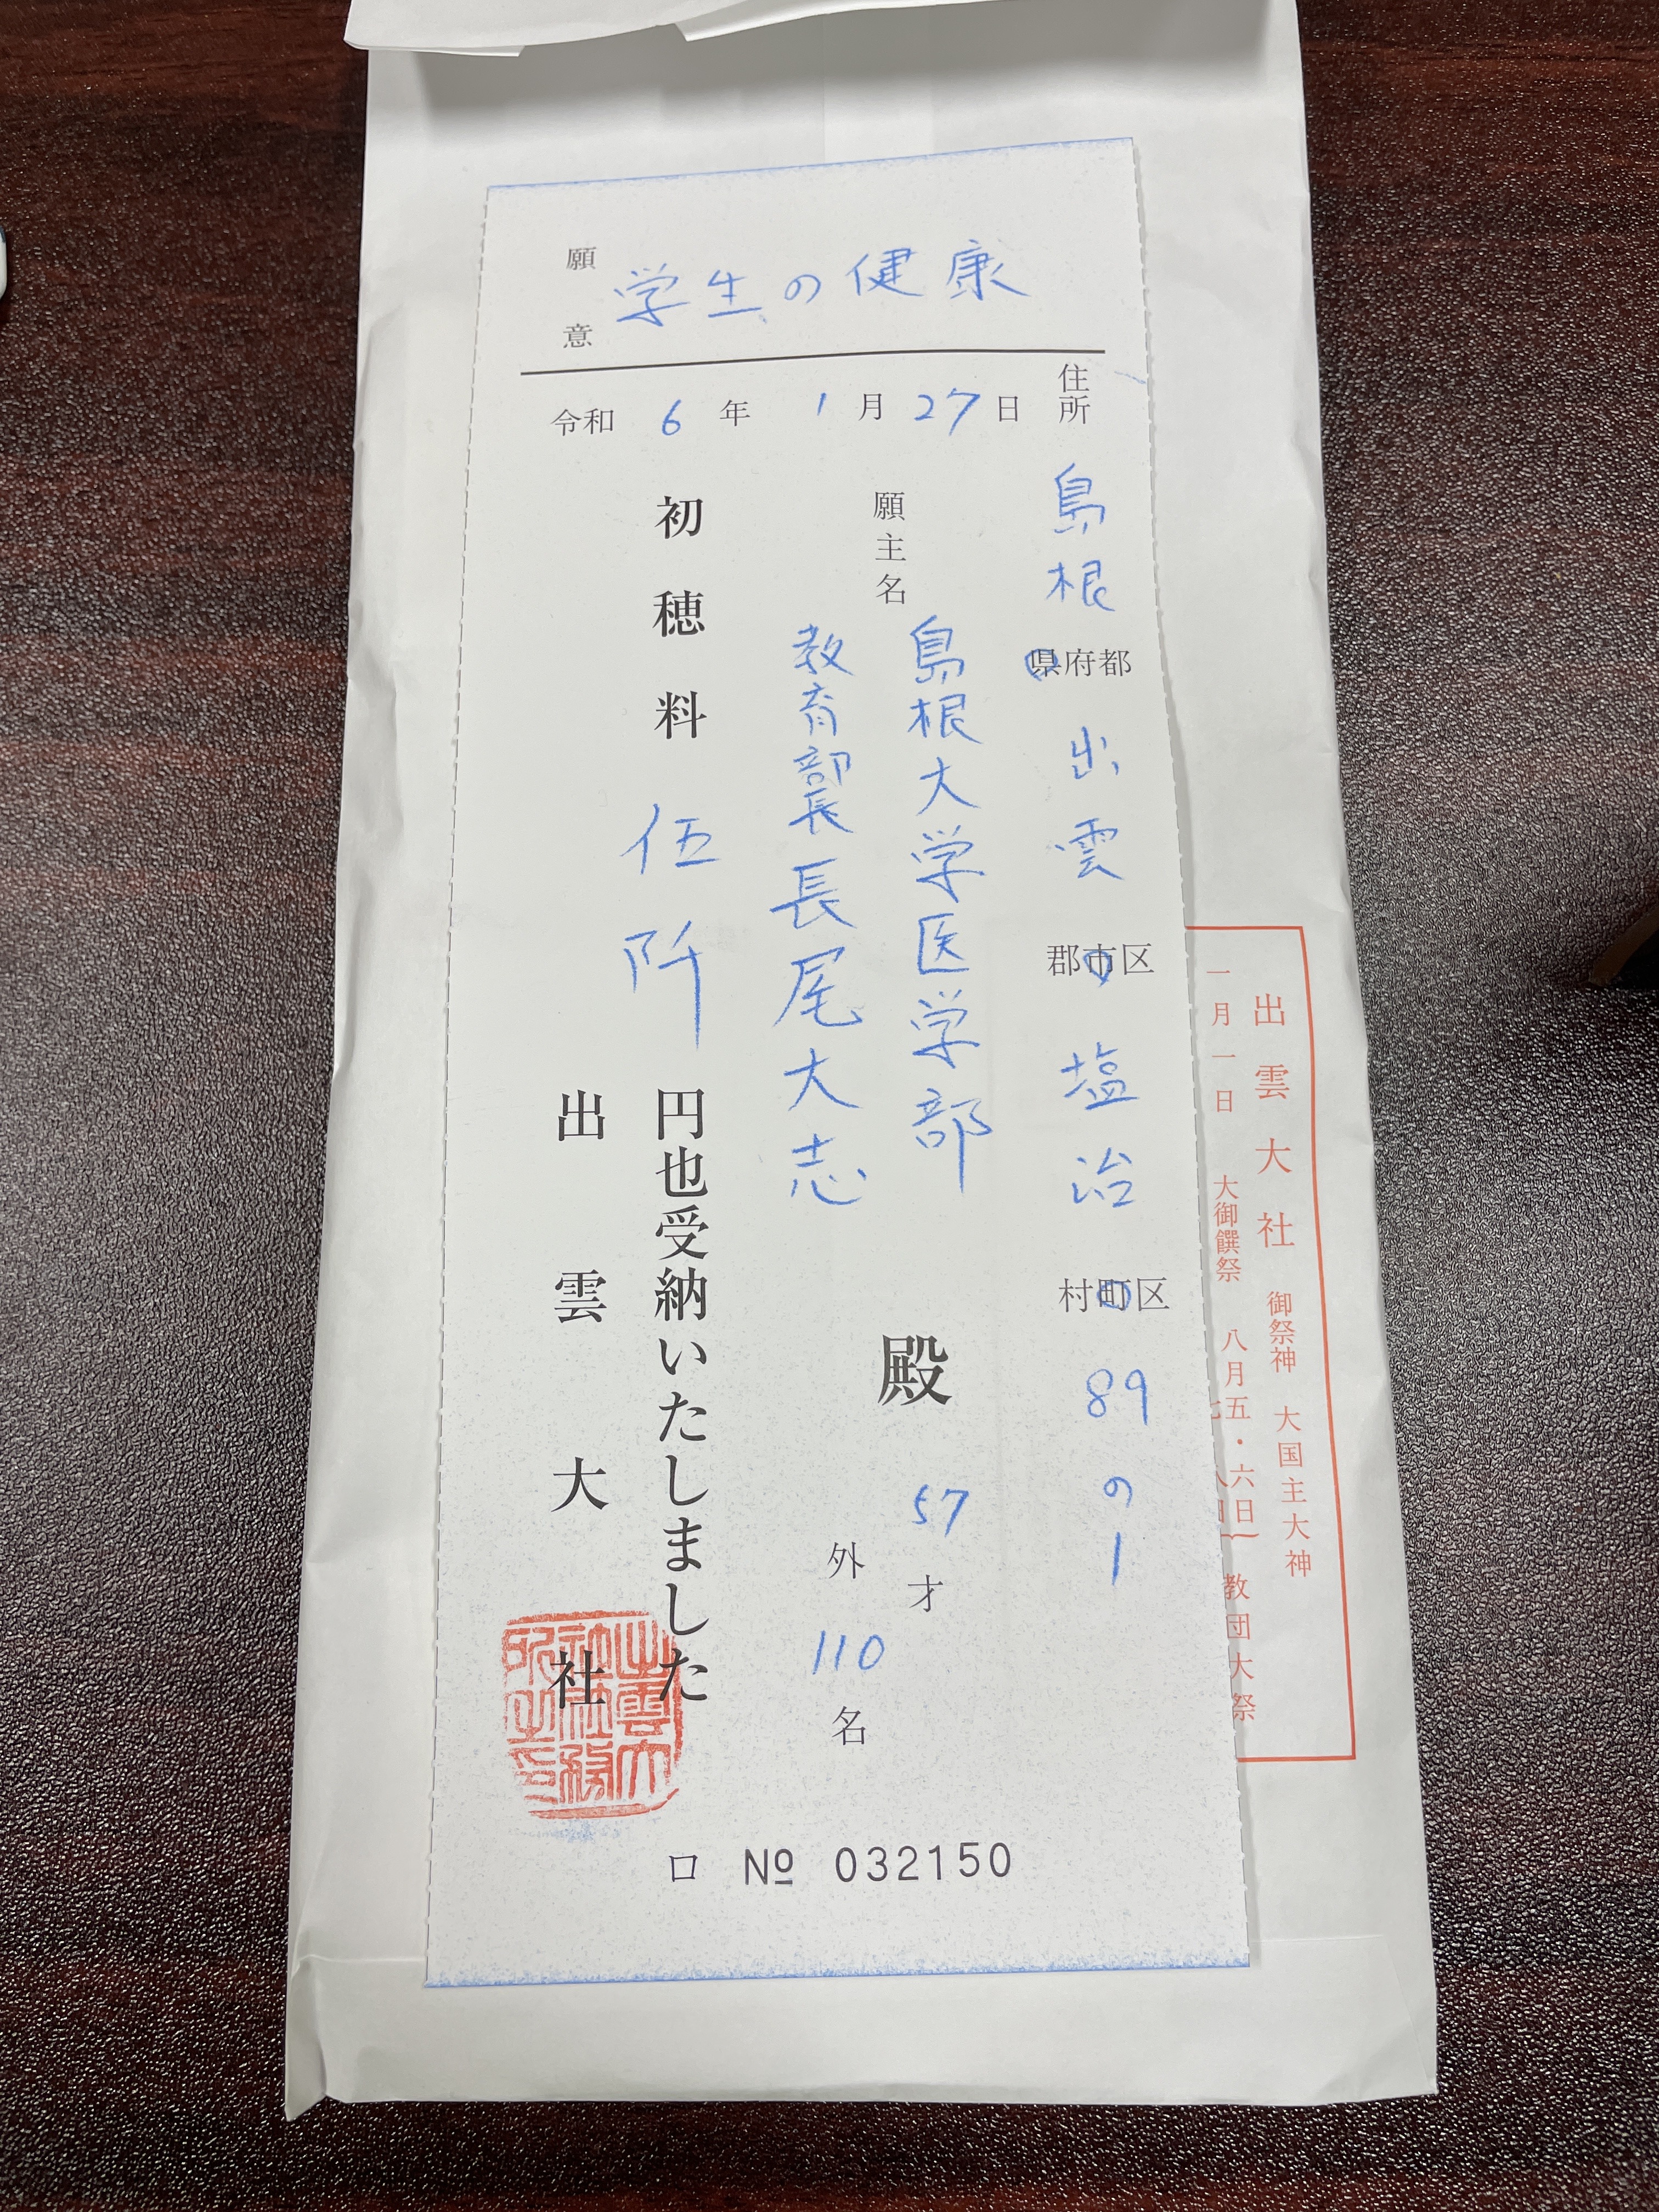 願意 学生の健康
令和 6 年 1 月 27 日
住所 島根 県府都 出雲 郡市区 塩治 村町区 89の1
願主名 島根大学医学部
教育部長 長尾大志
殿 57才
外 110 名
初穂料 伍阡 円也受納いたしました
出雲大社
口 № 032150
出雲大社 御祭神 大国主大神
一月一日 大御饌祭 八月五・六日 教団大祭